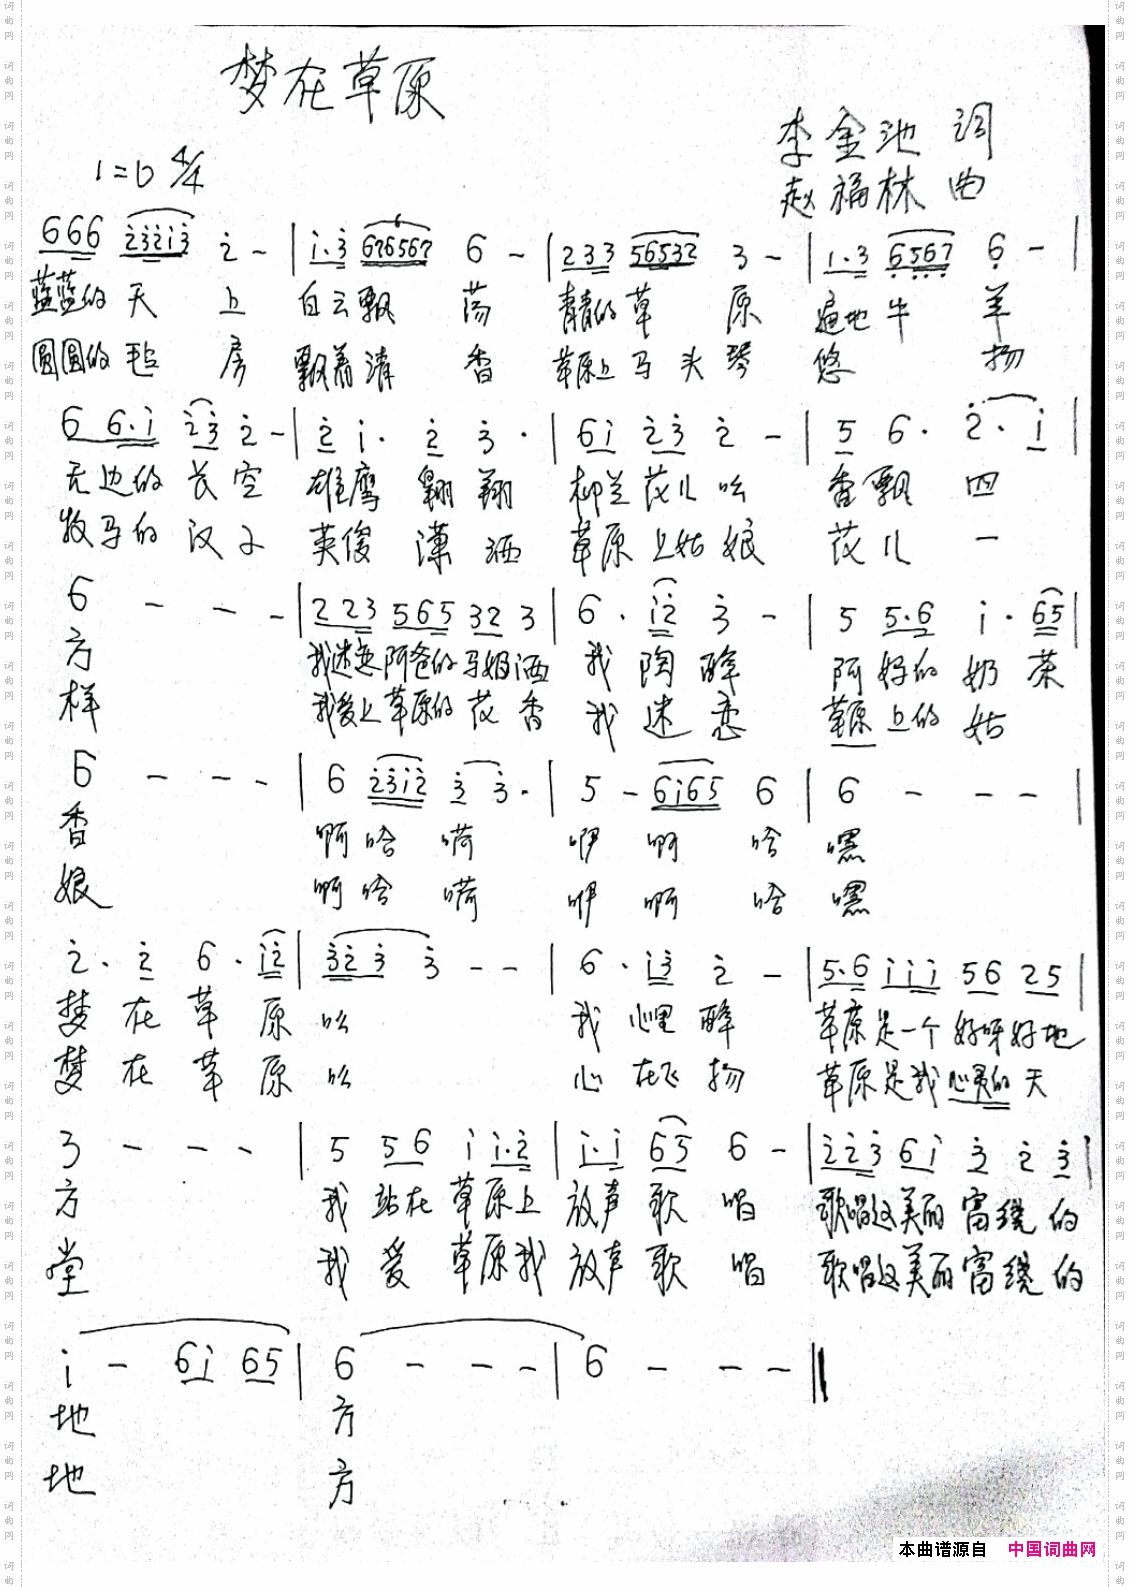 梦在草原
1=D 4/4
李金池 词
赵福林 曲
666 2̇3̇2̇1̇3̇ 2̇ - | 1̇·3̇ 676567 6 - | 233 56532 3 - | 1·3 6567 6 - |
蓝蓝的天 上 白云飘 荡 青青的草 原 遍地牛 羊
圆圆的毡 房 飘着清 香 草原上马头琴 悠 扬
6 6·1̇ 2̇3̇ 2̇ - | 2̇ 1̇· 2̇ 3̇· | 61̇ 2̇3̇ 2̇ - | 5 6· 2̇·1̇ |
无边的长空 雄鹰翱翔 柳兰花儿吆 香飘四
牧马的汉子 英俊潇洒 草原上姑娘 花儿一
6 - - - | 223 565 32 3 | 6· 1̇2̇ 3̇ - | 5 5·6 1̇· 65 |
方 我迷恋阿爸的马奶酒 我陶醉 阿妈的奶茶
样 我爱上草原的花香 我迷恋 草原上的姑
6 - - - | 6 2̇3̇1̇2̇ 3̇ 3̇· | 5 - 61̇65 6 | 6 - - - |
香 啊哈嗬 咿啊哈 嘿
娘 啊哈嗬 咿啊哈 嘿
2̇· 2̇ 6· 1̇2̇ | 3̇2̇ 3̇ 3̇ - - | 6· 1̇3̇ 2̇ - | 5·6 1̇1̇1̇ 56 25 |
梦在草原 吆 我心里醉 草原是一个好呀好地
梦在草原 吆 心在飞扬 草原是我心灵的天
3 - - - | 5 56 1̇ 1̇·2̇ | 1̇·1̇ 65 6 - | 2̇2̇3̇ 61̇ 3̇ 2̇ 3̇ |
方 我站在草原上 放声歌唱 歌唱这美丽富绕的
堂 我爱草原我 放声歌唱 歌唱这美丽富绕的
1̇ - 61̇ 65 | 6 - - - | 6 - - - ‖
地 方
地 方
本曲谱源自 中国词曲网